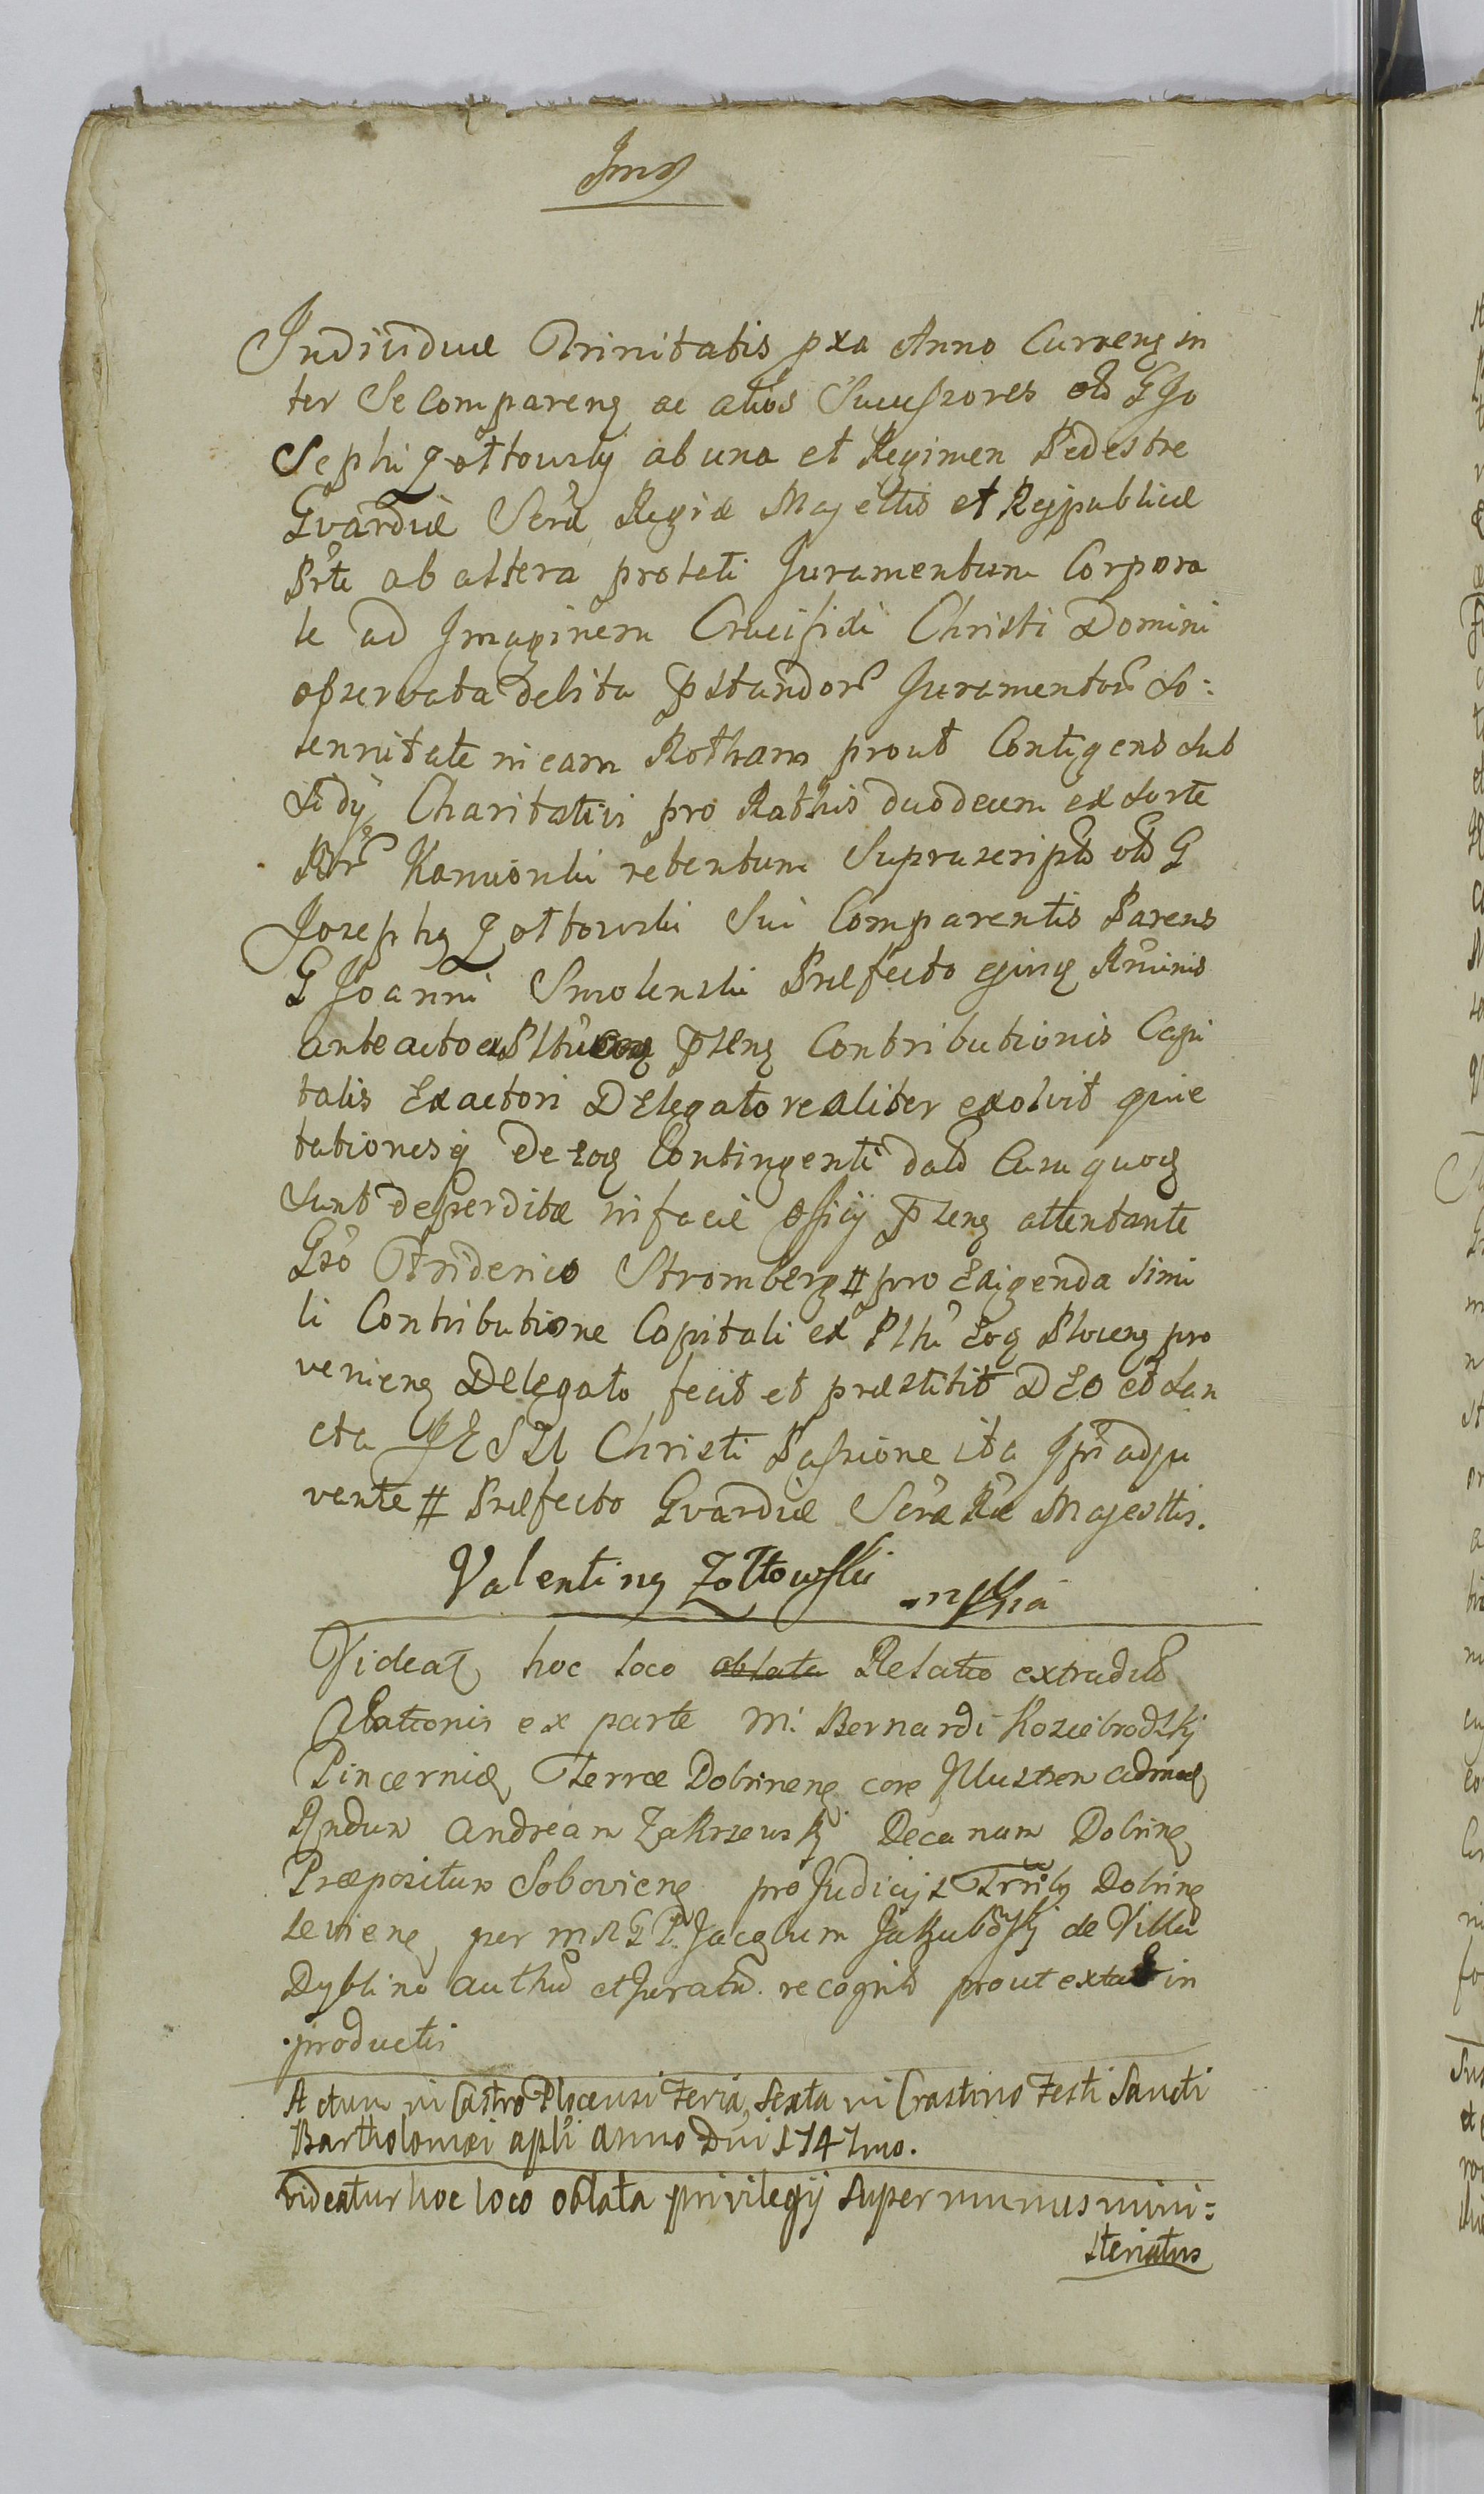 Individuæ Trinitatis pxa Anno Curreng in
ter Se Compareng ac alios Successores olō G Jo
Sephi Zołtowskj ab una et Regimen Pedestre
Gvardiæ Seræ Regiæ Majettis et Rejpublicæ
Prte ab altera protati Juramentum Corpora
le ad Imaginem Crucifixi Christi Domini
observata debita pstandor Juramentor So:
lennitate in eam Rotham prout Contigens Sub
sidy Charitativi pro Rathis duodecim ex Sorte
Kamionki retentum Suprascript olō G
Josephg Zołtowski Sui Comparentis Parens
G Joanni Smolenski Præfecto ejusq Rminis
anteacto ex Pltu pteng Contributionis Capi
talis Exactori Delegato realiter exolvit quie
tationesq de eog Contingenti datō Casu quog
Sunt desperditæ in facie officij pteng attentante
Gso Friderico Stromberg # pro Exigenda Simi
li Contributione Capitali ex Pltu eog Ploceng pro
venieng Delegato fecit et præstitit DEO et San
cta JESU Christi Passione ita Ipsi adju
vente # Præfecto Gvardiæ Seræ Ræ Majesttis.
Valenting Zołtowski mppia
Videat hoc loco oblata Relatio extradit
Citationis ex parte M. Bernardi Koziebrodzkj
Pincernia Terræ Dobrineng core Illustrem admod
Rndum Andream Zakrzewskj Decanum Dobring
Præpositum Sobovieng pro Judicijs Trrilg Dobring
Levieng per MRGP. Jacobum Jakubo͞skj de Villa
Dyblino authū et Juratū. recognit prout extat in
productis
Actum in Castro Plocensi Feria Sexta in Crastino Festi Sancti
Bartholomæi apli anno Dni 1747mo.
videatur hoc loco oblata privilegij Super munus mini:
steriatus